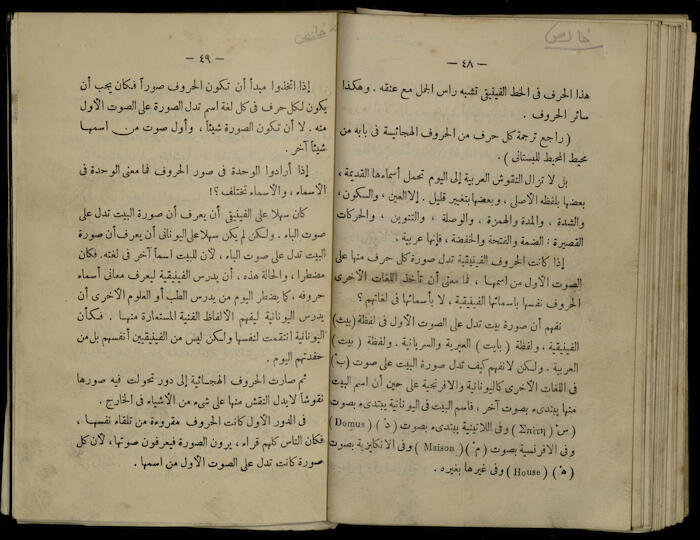 خالص
— ٤٨ —
هذا الحرف فى الخط الفينيقى تشبه راس الجمل مع عنقه . وهكذا
سائر الحروف .
( راجع ترجمة كل حرف من الحروف الهجائية فى بابه من
محيط المحيط للبستانى ) .
بل لا تزال النقوش العربية إلى اليوم تحمل أسماءها القديمة ،
بعضها بلفظه الأصلى ، وبعضها بتغيير قليل . إلا العين ، والسكون ،
والشدة . والمدة والهمزة ، والوصلة ، والتنوين ، والحركات
القصيرة : الضمة والفتحة والخفضة ، فإنها عربية .
إذا كانت الحروف الفينيقية تدل صورة كل حرف منها على
الصوت الأول من اسمها ، فما معنى أن تأخذ اللغات الأخرى
الحروف نفسها باسمائها الفينيقية ، لا بأسمائها فى لغاتهم ؟
نفهم أن صورة بيت تدل على الصوت الأول فى لفظة (بيث)
الفينيقية ، ولفظة ( بايت ) العبرية والسريانية . ولفظة ( بيت )
العربية . ولكن لا نفهم كيف تدل صورة البيت على صوت (ب)
فى اللغات الأخرى كاليونانية والافرنجية على حين أن اسم البيت
منها يبتدىء بصوت آخر ، فاسم البيت فى اليونانية يبتدىء بصوت
(س) (Σπίτη) وفى اللاتينية يبتدىء بصوت (د) (Domus)
وفى الافرنسية بصوت (م) (Maison) وفى الانكليزية بصوت
(ه) (House) وفى غيرها بغيره .
خالص
— ٤٩ —
إذا اتخذوا مبدأ أن تكون الحروف صوراً فكان يجب أن
يكون لكل حرف فى كل لغة اسم تدل الصورة على الصوت الأول
منه . لا أن تكون الصورة شيئاً ، وأول صوت من اسمها
شيئاً آخر .
إذا أرادوا الوحدة فى صور الحروف فما معنى الوحدة فى
الأسماء ، والأسماء تختلف ؟!
كان سهلا على الفينيقى أن يعرف أن صورة البيت تدل على
صوت الباء . ولكن لم يكن سهلا على اليونانى أن يعرف أن صورة
البيت تدل على صوت الباء ، لأن للبيت اسماً آخر فى لغته . فكان
مضطرا ، والحالة هذه ، أن يدرس الفينيقية ليعرف معانى أسماء
حروفه ، كما يضطر اليوم من يدرس الطب أو العلوم الأخرى أن
يدرس اليونانية ليفهم الألفاظ الفنية المستعارة منها . فكأن
اليونانية انتقمت لنفسها ولكن ليس من الفينيقيين أنفسهم بل من
حفدتهم اليوم .
ثم صارت الحروف الهجائية إلى دور تحولت فيه صورها
نقوشاً لايدل النقش منها على شىء من الأشياء فى الخارج .
فى الدور الأول كانت الحروف مقروءة من تلقاء نفسها ،
فكان الناس كلهم قراء ، يرون الصورة فيعرفون صوتها ، لأن كل
صورة كانت تدل على الصوت الأول من اسمها .